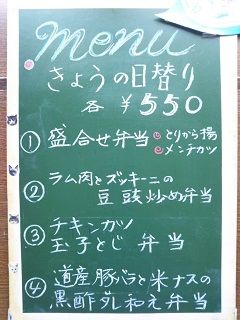 menu
きょうの日替り
各 ¥550
① 盛合せ弁当 とりから揚
メンチカツ
② ラム肉とズッキーニの
豆豉炒め弁当
③ チキンカツ
玉子とじ 弁当
④ 道産豚バラと米ナスの
黒酢あん和え弁当